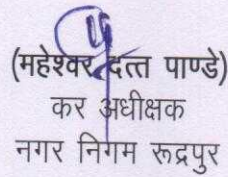 (महेश्वर दत्त पाण्डे)
कर अधीक्षक
नगर निगम रूद्रपुर